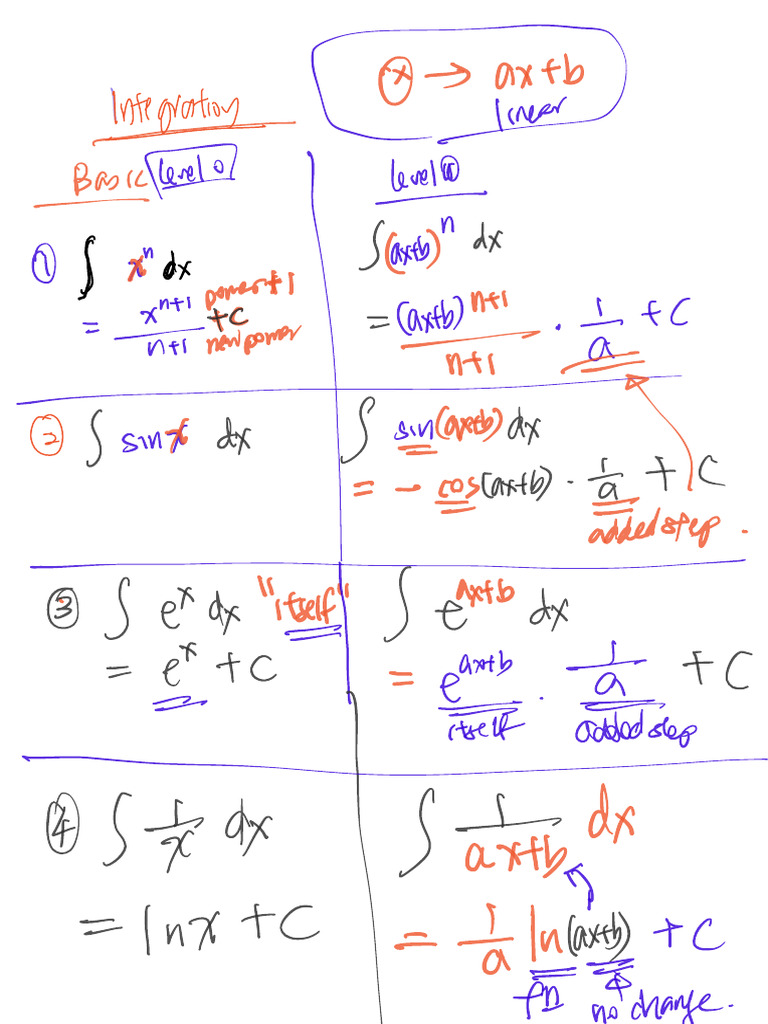 ⓧ → ax+b
linear
Integration
Basic Level 0
Level ①
① ∫ xⁿ dx
= xⁿ⁺¹/n+1 + C
power + 1
new power
∫ (ax+b)ⁿ dx
= (ax+b)ⁿ⁺¹/n+1 · 1/a + C
② ∫ sin x dx
∫ sin(ax+b) dx
= - cos(ax+b) · 1/a + C
added step.
③ ∫ eˣ dx "itself"
= eˣ + C
∫ e^(ax+b) dx
= e^(ax+b) · 1/a + C
itself added step
④ ∫ 1/x dx
= ln x + C
∫ 1/ax+b dx
= 1/a ln(ax+b) + C
fn no change.